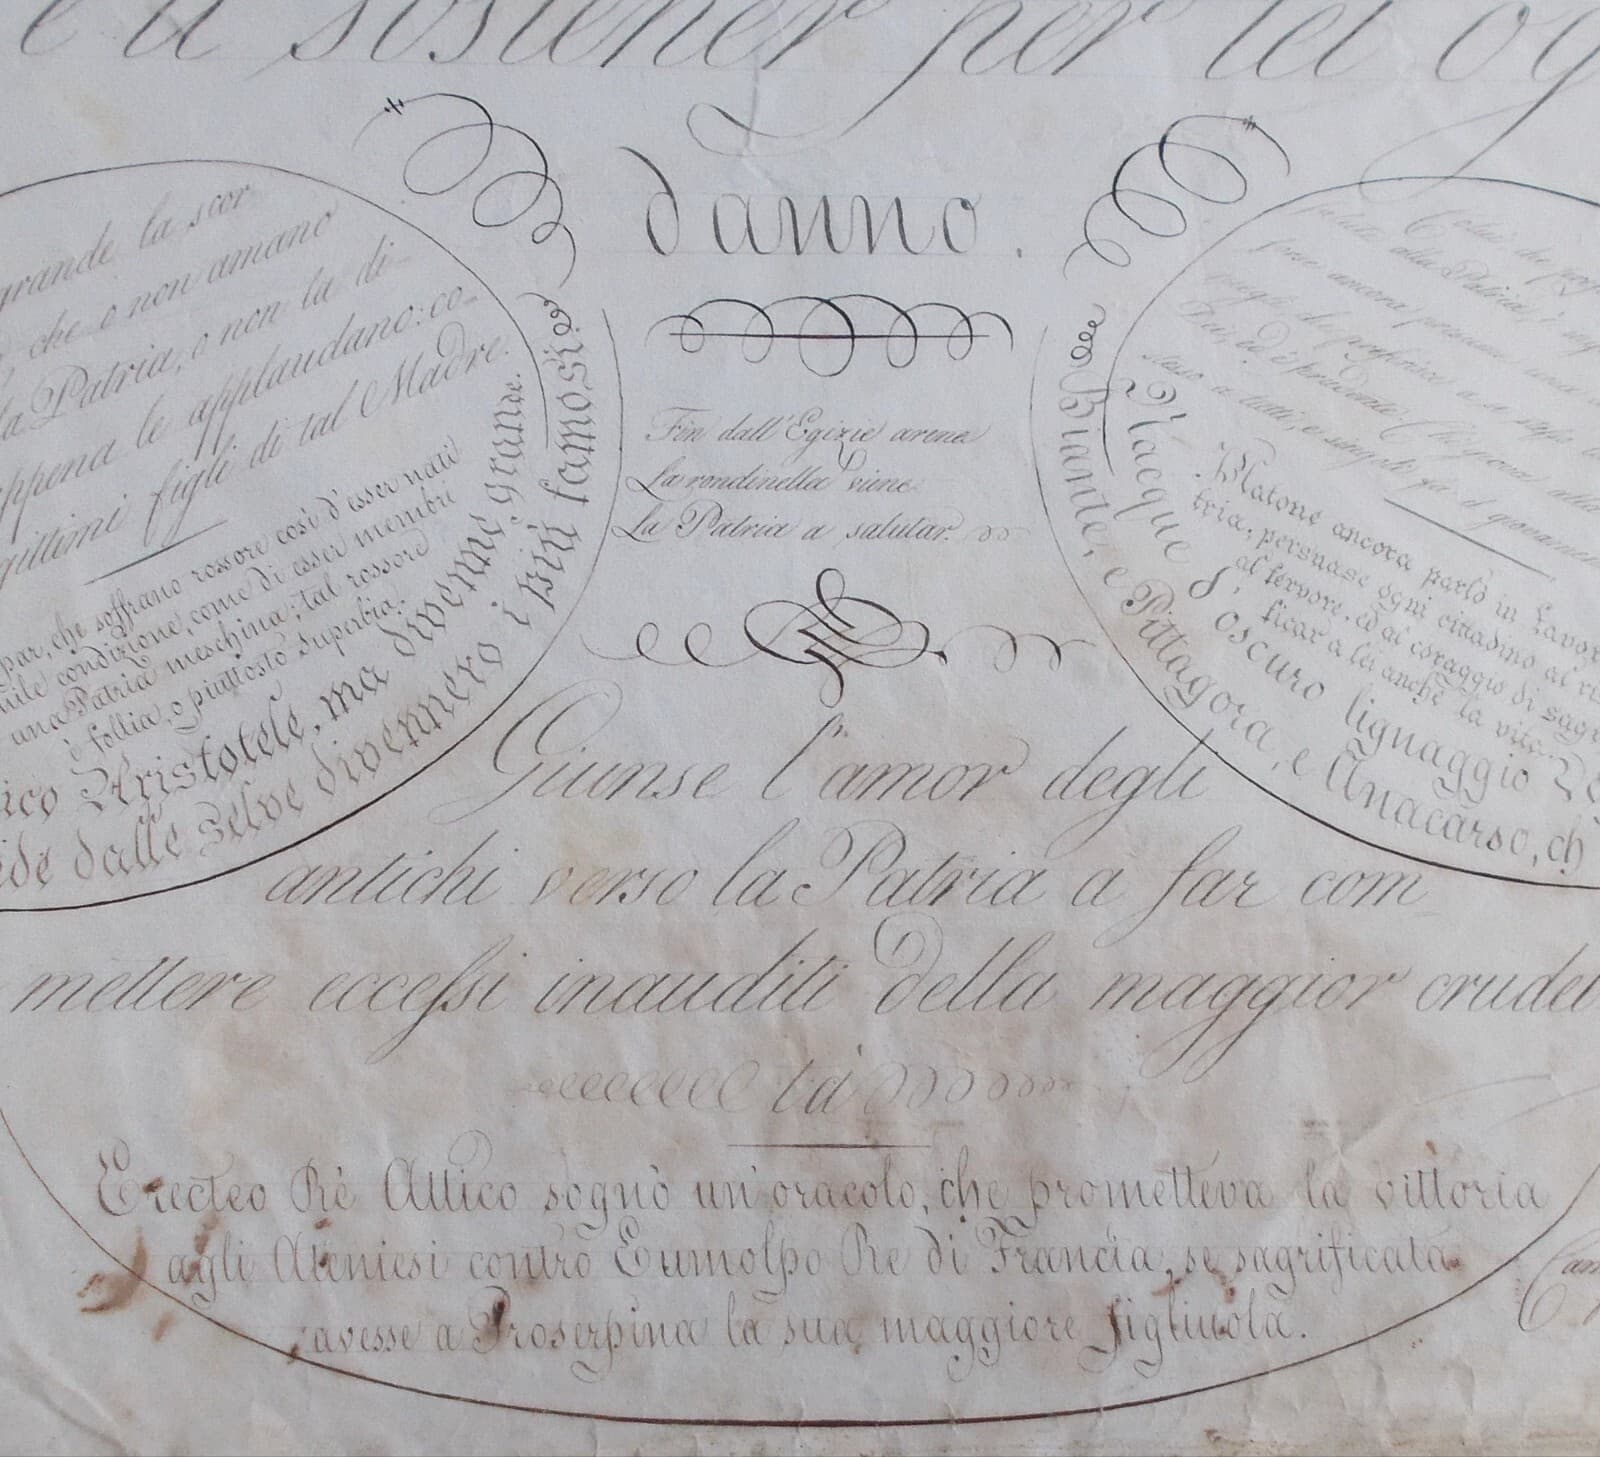 e a sostener per lei og
danno.
grande la scor
che o non amano
la Patria, o non la di-
appena le applaudano: co-
gittimi figli di tal Madre.
par, che soffrano rossore così d'esser nati
vile condizione, come di esser membri
una Patria meschina; tal rossore
è follia, o piuttosto Superbia.
ico Aristotele, ma divenne grande.
ide dalle selve divennero i più famosi.
Fin dall'Egizie arene
La rondinella viene
La Patria a salutar.
Colui che
salute della Patria, è
forse ancora, presume una
a se stesso
Lui, ed è prudente Chi giova alla
steso a tutti, e singoli già il giovamen
Platone ancora parlò in favor
tria, persuase ogni cittadino al
al fervore, ed al coraggio di sagri
ficar a lei anche la vita.
Nacque d'oscuro lignaggio
Biante, e Pittagora, e Anacarso, ch
Giunse l'amor degli
antichi verso la Patria a far com-
mettere eccessi inauditi della maggior crudel
tà
Erecteo Rè Attico sognò un'oracolo, che prometteva la vittoria
agli Ateniesi contro Eumolpo Re di Francia, se sagrificata
avesse a Proserpina la sua maggiore figliuola.
Cam